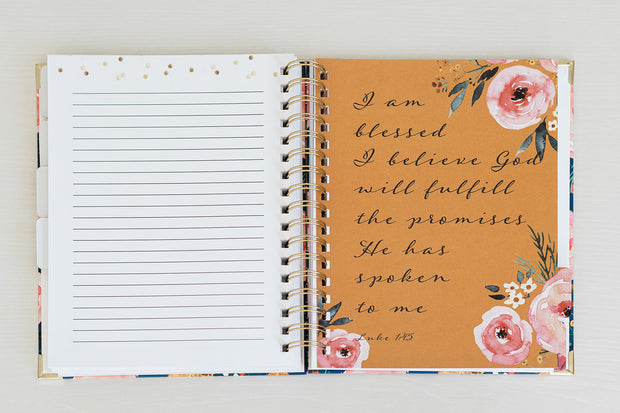 I am
blessed
I believe God
will fulfill
the promises
He has
spoken
to me
Luke 1:45